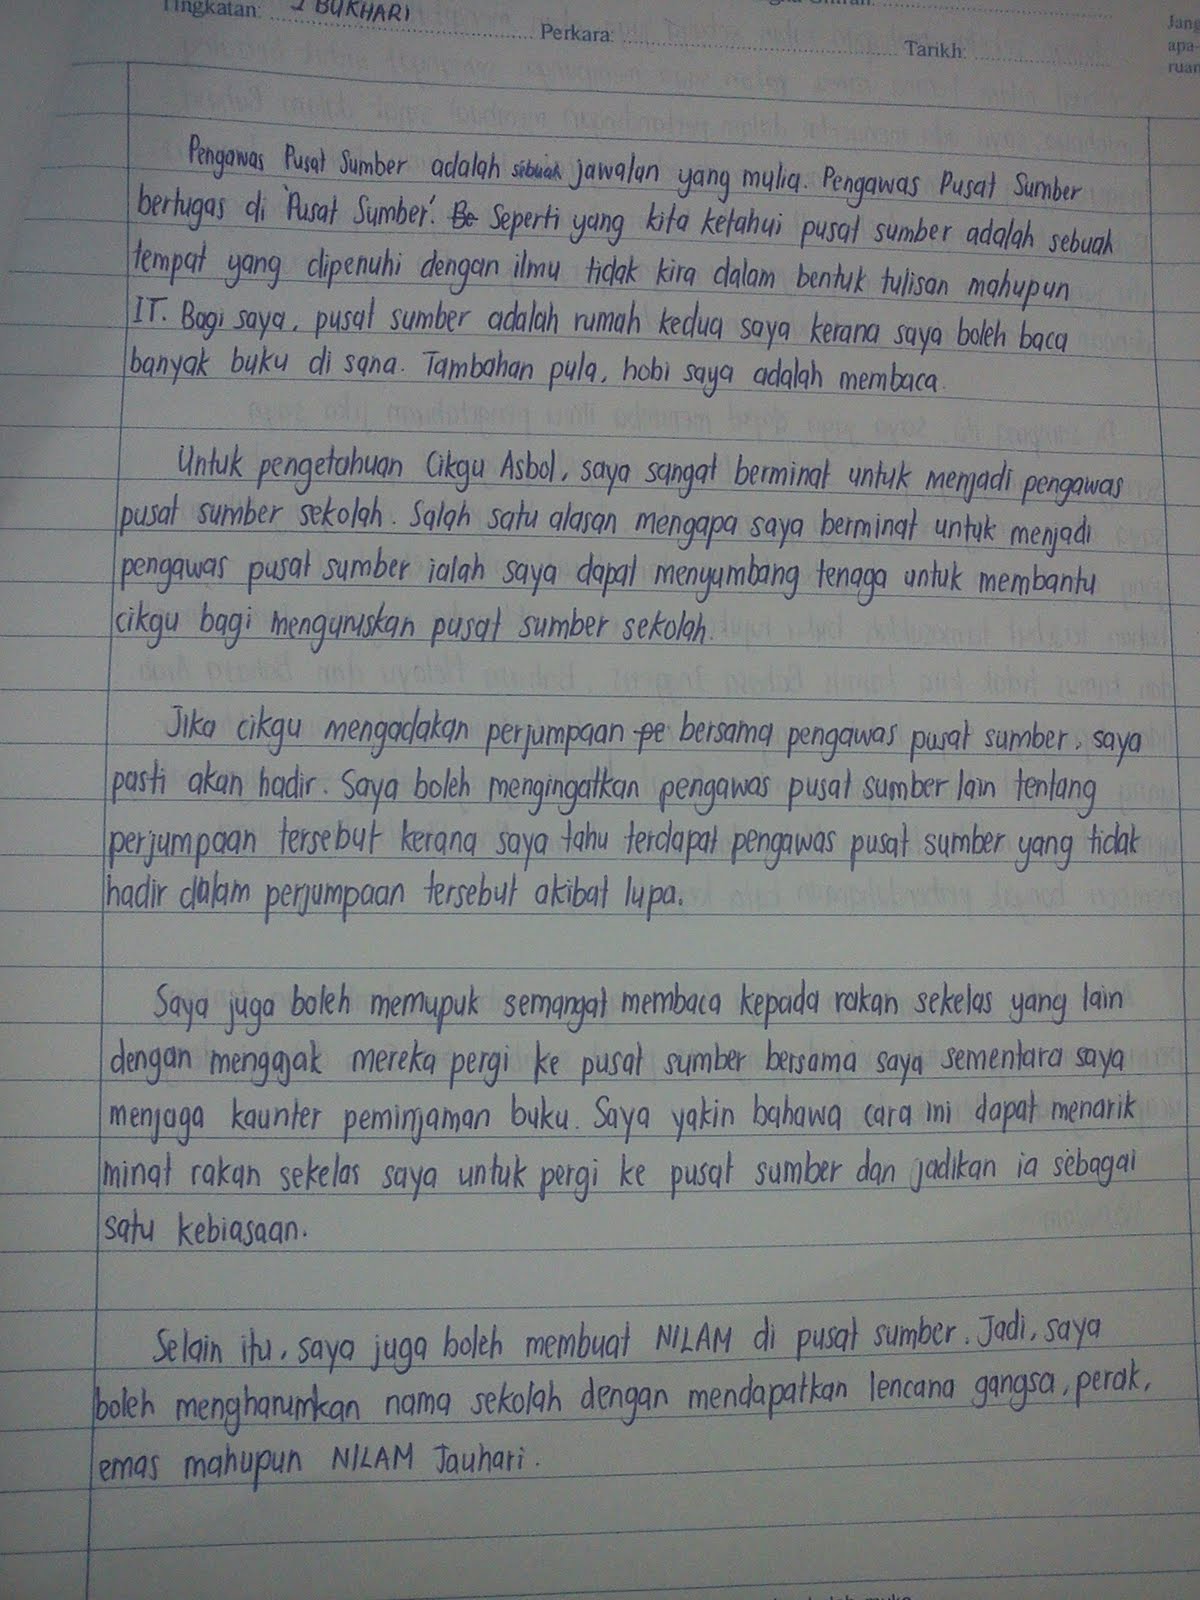 Tingkatan: 2 BUKHARI Perkara: Tarikh:
Jang
apa-
ruan
Pengawas Pusat Sumber adalah sebuah jawalan yang mulia. Pengawas Pusat Sumber
bertugas di 'Pusat Sumber'. Be Seperti yang kita ketahui pusat sumber adalah sebuah
tempat yang dipenuhi dengan ilmu tidak kira dalam bentuk tulisan mahupun
IT. Bagi saya, pusat sumber adalah rumah kedua saya kerana saya boleh baca
banyak buku di sana. Tambahan pula, hobi saya adalah membaca.
Untuk pengetahuan Cikgu Asbol, saya sangat berminat untuk menjadi pengawas
pusat sumber sekolah. Salah satu alasan mengapa saya berminat untuk menjadi
pengawas pusat sumber ialah saya dapat menyumbang tenaga untuk membantu
cikgu bagi menguruskan pusat sumber sekolah.
Jika cikgu mengadakan perjumpaan pe bersama pengawas pusat sumber, saya
pasti akan hadir. Saya boleh mengingatkan pengawas pusat sumber lain tentang
perjumpaan tersebut kerana saya tahu terdapat pengawas pusat sumber yang tidak
hadir dalam perjumpaan tersebut akibat lupa.
Saya juga boleh memupuk semangat membaca kepada rakan sekelas yang lain
dengan mengajak mereka pergi ke pusat sumber bersama saya sementara saya
menjaga kaunter peminjaman buku. Saya yakin bahawa cara ini dapat menarik
minat rakan sekelas saya untuk pergi ke pusat sumber dan jadikan ia sebagai
satu kebiasaan.
Selain itu, saya juga boleh membuat NILAM di pusat sumber. Jadi, saya
boleh mengharumkan nama sekolah dengan mendapatkan lencana gangsa, perak,
emas mahupun NILAM Jauhari.